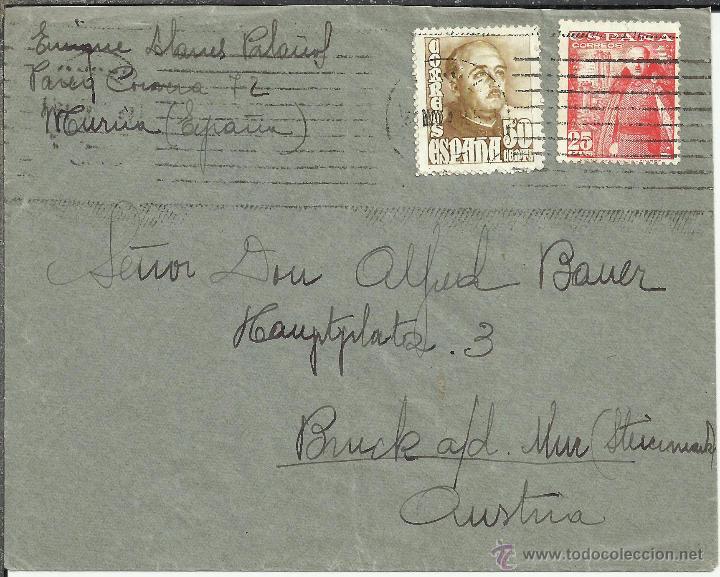 Enrique
72
Murcia (España)
CORREOS
50
ESPAÑA
ESPAÑA
CORREOS
25
Señor Don Alfred Bauer
Hauptplatz. 3
Bruck a/d. Mur (Steiermark)
Austria
www.todocoleccion.net